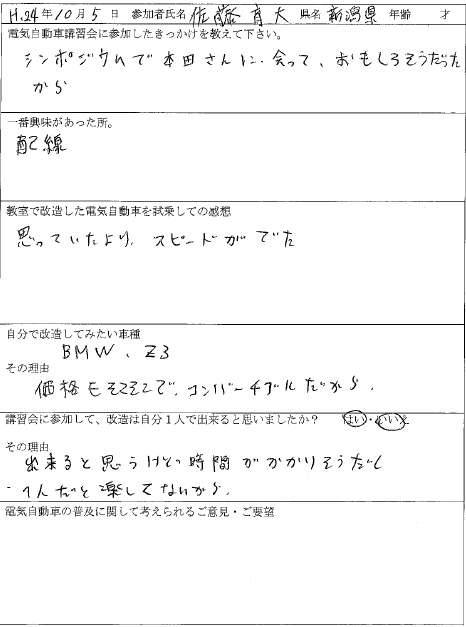 H.24年10月5日 参加者氏名 佐藤育大 県名 新潟県 年齢 才
電気自動車講習会に参加したきっかけを教えて下さい。
シンポジウムで本田さんに、会って、おもしろそうだった
から
一番興味があった所。
配線
教室で改造した電気自動車を試乗しての感想
思っていたより、スピードがでた
自分で改造してみたい車種
BMW、Z3
その理由
価格もそこそこで、コンバーチブルだから、
講習会に参加して、改造は自分1人で出来ると思いましたか? はい・いいえ
その理由
出来ると思うけどの時間がかかりそうだし
・1人だと楽しくないから、
電気自動車の普及に関して考えられるご意見・ご要望